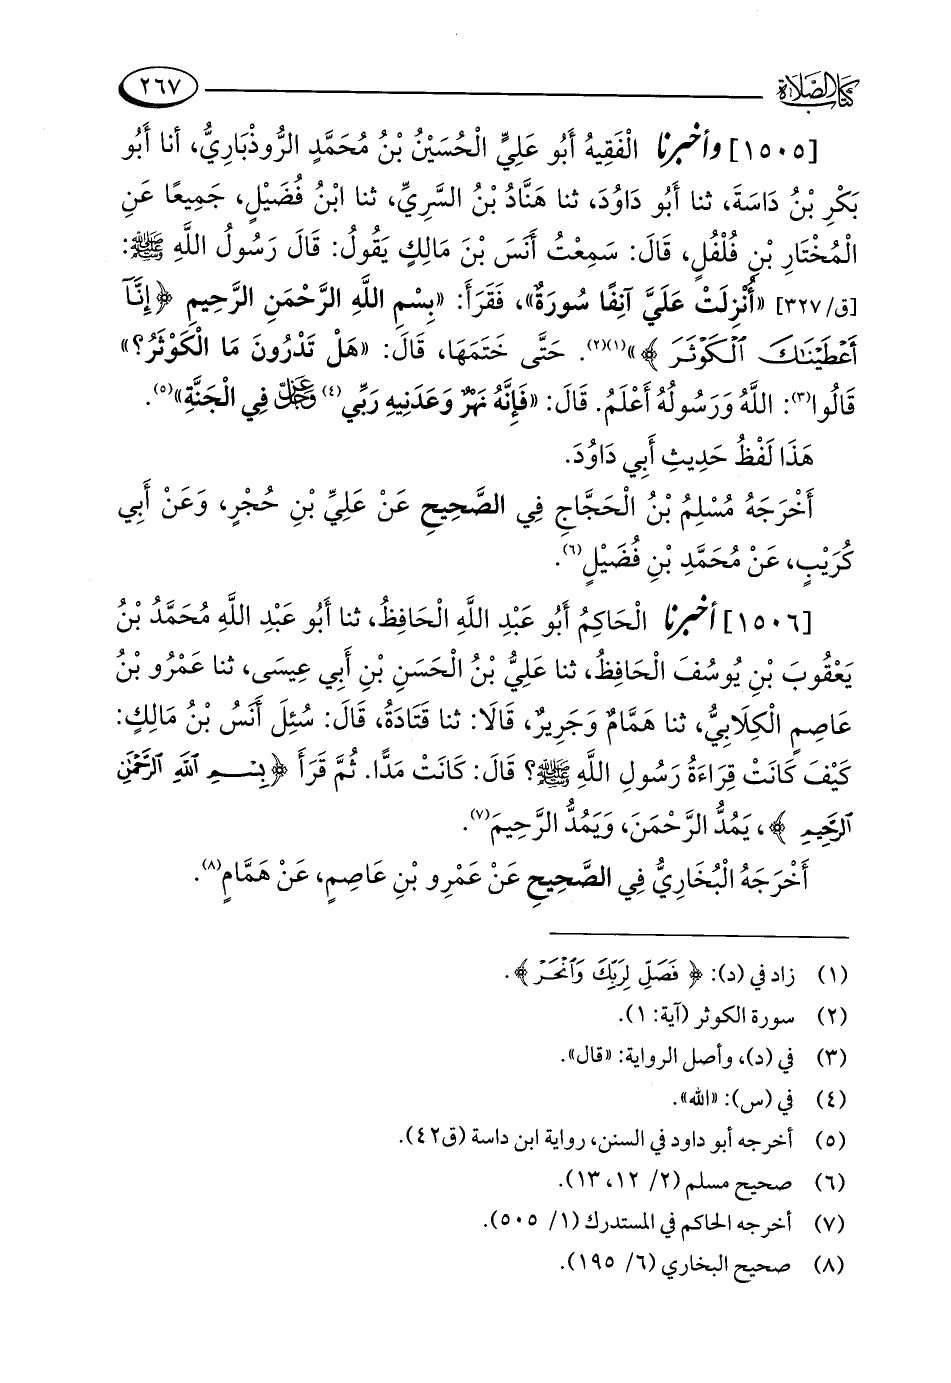 كتاب الصلاة
٢٦٧
[١٥٠٥] وأخبرنا الْفَقِيهُ أَبُو عَلِيٍّ الْحُسَيْنُ بْنُ مُحَمَّدٍ الرُّوذْبَارِيُّ، أنا أَبُو
بَكْرِ بْنُ دَاسَةَ، ثنا أَبُو دَاوُدَ، ثنا هَنَّادُ بْنُ السَّرِيِّ، ثنا ابْنُ فُضَيْلٍ، جَمِيعًا عَنِ
الْمُخْتَارِ بْنِ فُلْفُلٍ، قَالَ: سَمِعْتُ أَنَسَ بْنَ مَالِكٍ يَقُولُ: قَالَ رَسُولُ اللَّهِ ﷺ:
[ق/٣٢٧] «أُنْزِلَتْ عَلَيَّ آنِفًا سُورَةٌ»، فَقَرَأَ: «بِسْمِ اللَّهِ الرَّحْمَنِ الرَّحِيمِ ﴿إِنَّآ
أَعْطَيْنَـٰكَ ٱلْكَوْثَرَ﴾»(١)(٢). حَتَّى خَتَمَهَا، قَالَ: «هَلْ تَدْرُونَ مَا الْكَوْثَرُ؟»
قَالُوا(٣): اللَّهُ وَرَسُولُهُ أَعْلَمُ. قَالَ: «فَإِنَّهُ نَهْرٌ وَعَدَنِيهِ رَبِّي(٤) عَزَّ وَجَلَّ فِي الْجَنَّةِ»(٥).
هَذَا لَفْظُ حَدِيثِ أَبِي دَاوُدَ.
أَخْرَجَهُ مُسْلِمُ بْنُ الْحَجَّاجِ فِي الصَّحِيحِ عَنْ عَلِيِّ بْنِ حُجْرٍ، وَعَنْ أَبِي
كُرَيْبٍ، عَنْ مُحَمَّدِ بْنِ فُضَيْلٍ(٦).
[١٥٠٦] أخبرنا الْحَاكِمُ أَبُو عَبْدِ اللَّهِ الْحَافِظُ، ثنا أَبُو عَبْدِ اللَّهِ مُحَمَّدُ بْنُ
يَعْقُوبَ بْنِ يُوسُفَ الْحَافِظُ، ثنا عَلِيُّ بْنُ الْحَسَنِ بْنِ أَبِي عِيسَى، ثنا عَمْرُو بْنُ
عَاصِمٍ الْكِلَابِيُّ، ثنا هَمَّامٌ وَجَرِيرٌ، قَالَا: ثنا قَتَادَةُ، قَالَ: سُئِلَ أَنَسُ بْنُ مَالِكٍ:
كَيْفَ كَانَتْ قِرَاءَةُ رَسُولِ اللَّهِ ﷺ؟ قَالَ: كَانَتْ مَدًّا. ثُمَّ قَرَأَ ﴿بِسْمِ ٱللَّهِ ٱلرَّحْمَـٰنِ
ٱلرَّحِيمِ﴾، يَمُدُّ الرَّحْمَنَ، وَيَمُدُّ الرَّحِيمَ(٧).
أَخْرَجَهُ الْبُخَارِيُّ فِي الصَّحِيحِ عَنْ عَمْرِو بْنِ عَاصِمٍ، عَنْ هَمَّامٍ(٨).
(١) زاد في (د): ﴿فَصَلِّ لِرَبِّكَ وَٱنْحَرْ﴾.
(٢) سورة الكوثر (آية: ١).
(٣) في (د)، وأصل الرواية: «قال».
(٤) في (س): «الله».
(٥) أخرجه أبو داود في السنن، رواية ابن داسة (ق٤٢).
(٦) صحيح مسلم (٢/ ١٢، ١٣).
(٧) أخرجه الحاكم في المستدرك (١/ ٥٠٥).
(٨) صحيح البخاري (٦/ ١٩٥).